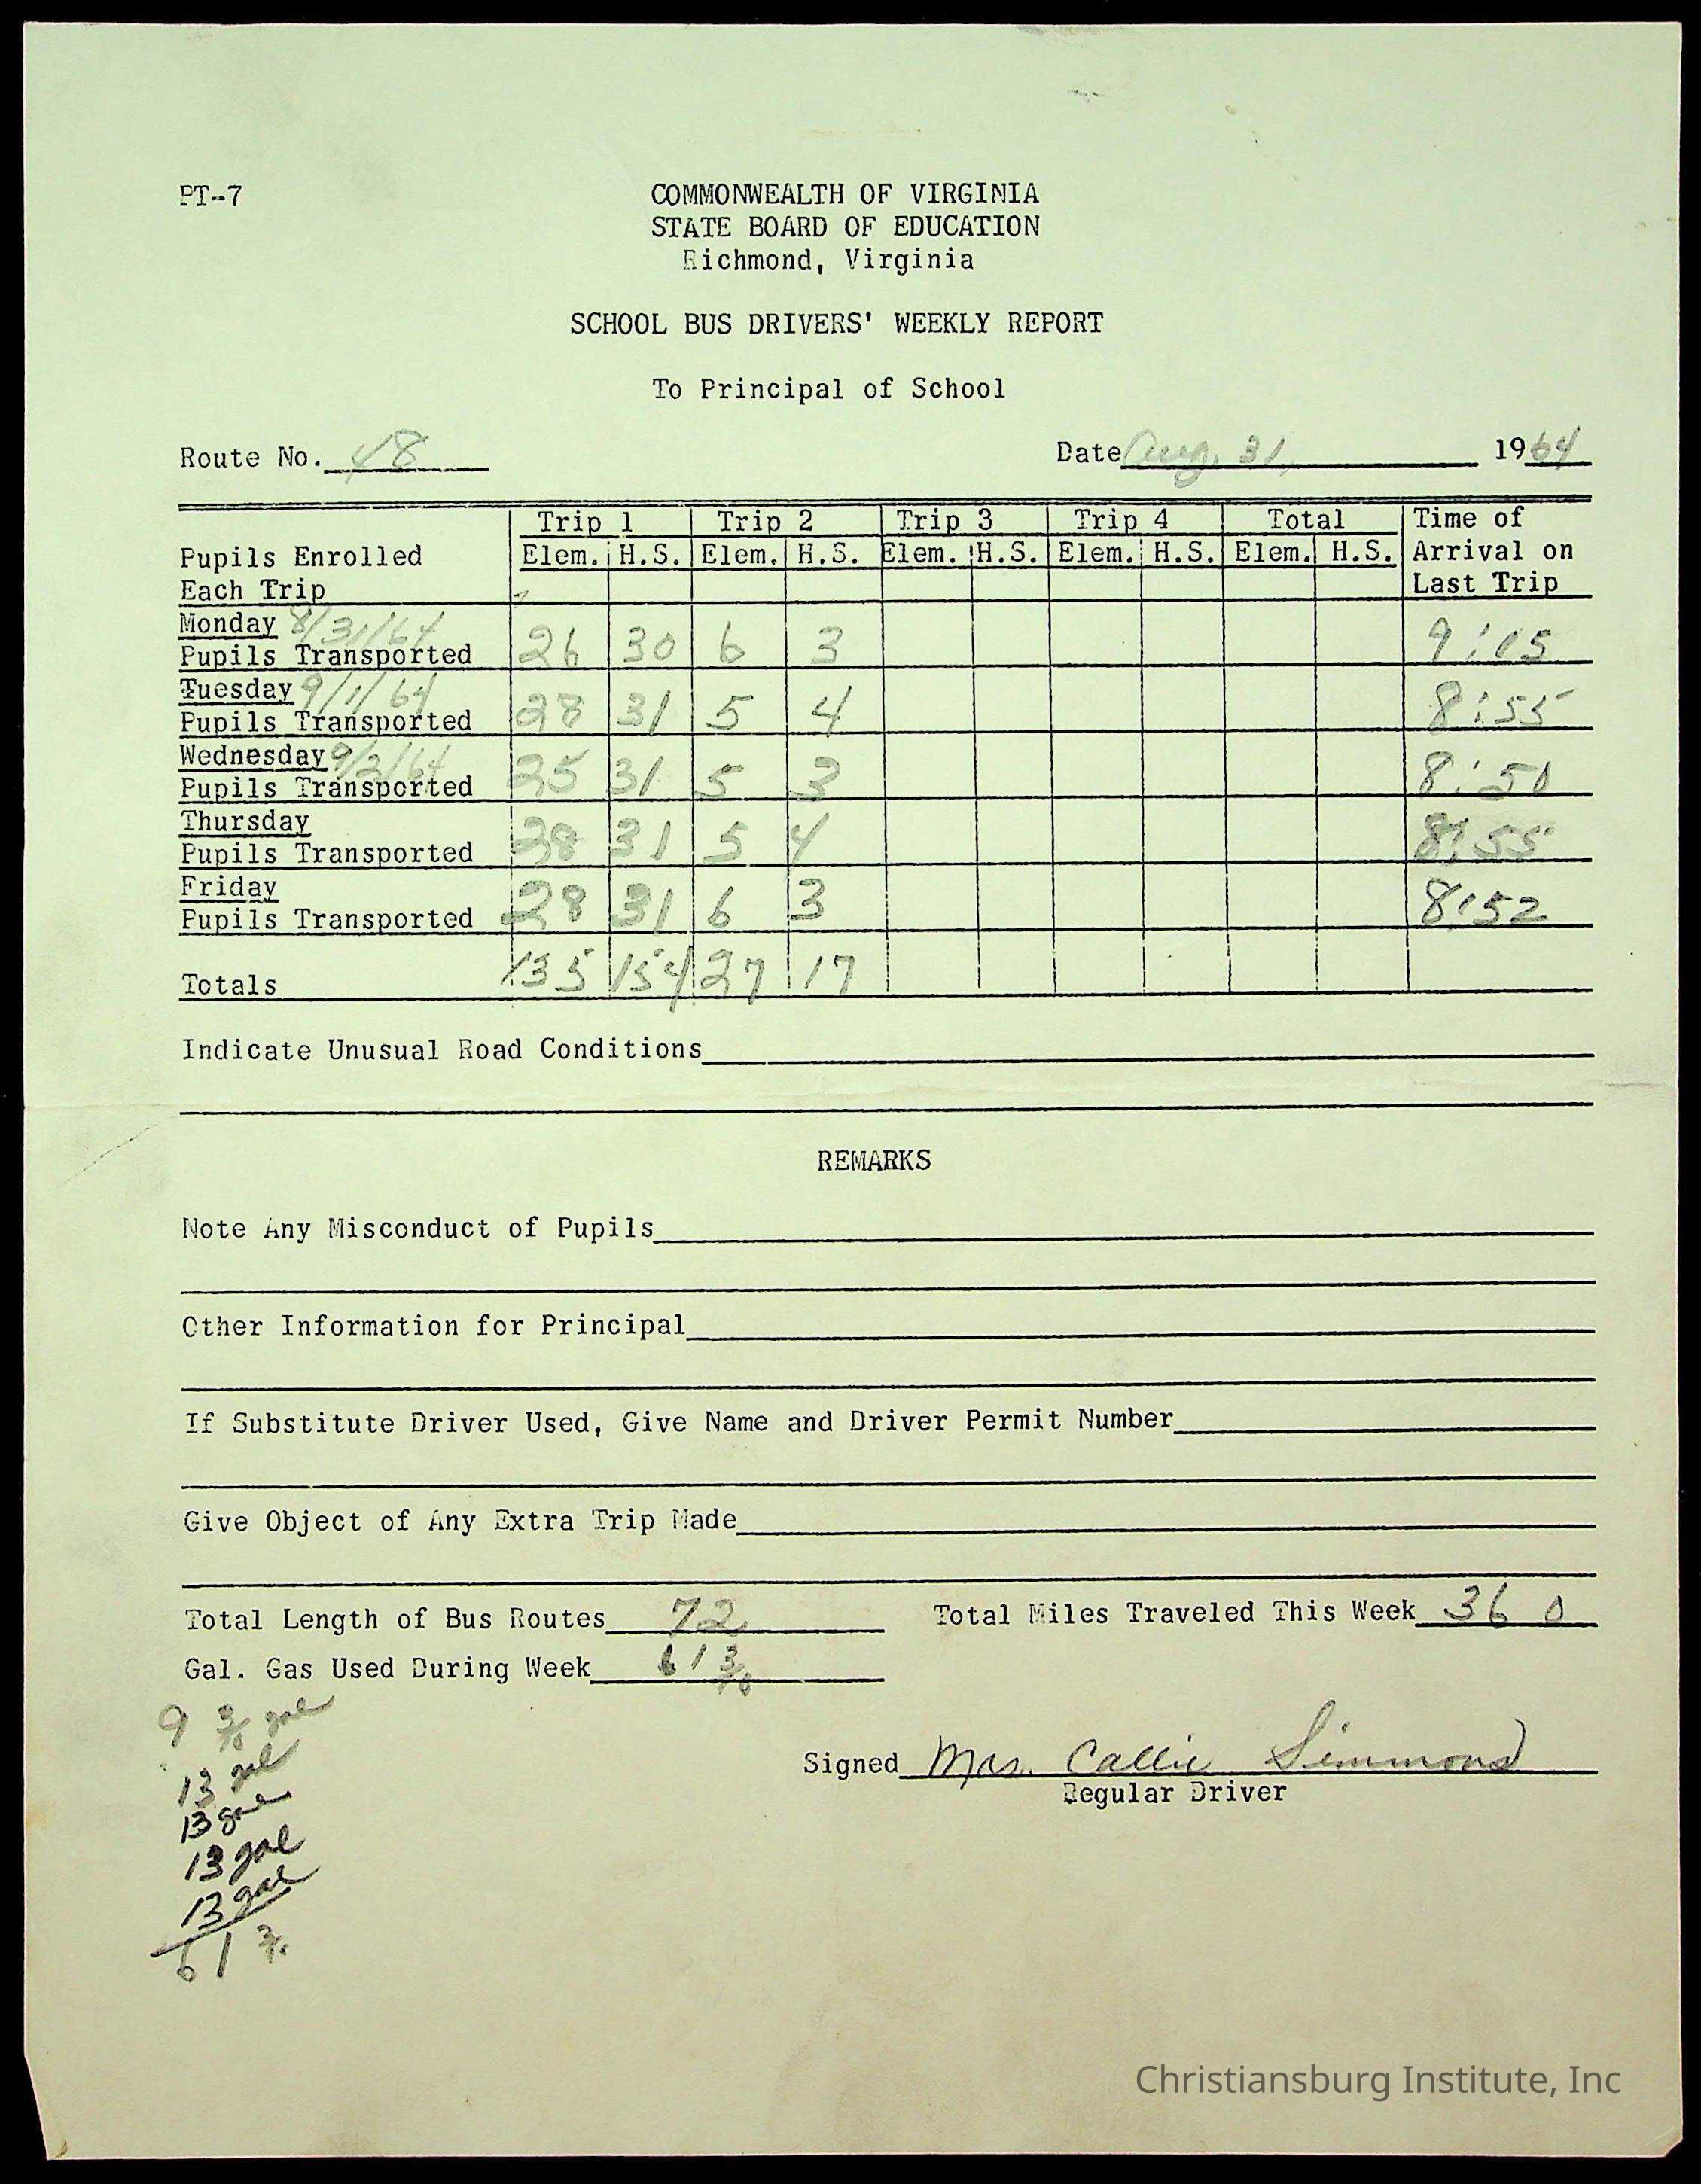 PT-7
COMMONWEALTH OF VIRGINIA
STATE BOARD OF EDUCATION
Richmond, Virginia
SCHOOL BUS DRIVERS' WEEKLY REPORT
To Principal of School
Route No. 48 Date Aug. 31, 1964
Trip 1 Trip 2 Trip 3 Trip 4 Total Time of
Pupils Enrolled Elem. H.S. Elem. H.S. Elem. H.S. Elem. H.S. Elem. H.S. Arrival on
Each Trip Last Trip
Monday 8/31/64
Pupils Transported 26 30 6 3 9:05
Tuesday 9/1/64
Pupils Transported 28 31 5 4 8:55
Wednesday 9/2/64
Pupils Transported 25 31 5 3 8:50
Thursday
Pupils Transported 28 31 5 4 8:55
Friday
Pupils Transported 28 31 6 3 8:52
Totals 135 154 27 17
Indicate Unusual Road Conditions
REMARKS
Note Any Misconduct of Pupils
Other Information for Principal
If Substitute Driver Used, Give Name and Driver Permit Number
Give Object of Any Extra Trip Made
Total Length of Bus Routes 72 Total Miles Traveled This Week 360
Gal. Gas Used During Week 61 3/10
9 3/10 gal
13 gal
13 gal
13 gal
13 gal
61 3/10
Signed Mrs. Callie Simmons
Regular Driver
Christiansburg Institute, Inc